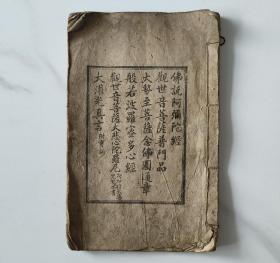 佛說阿彌陀經
觀世音菩薩普門品
大勢至菩薩念佛圓通章
般若波羅密多心經
觀世音菩薩大悲陀羅尼
大灌光真言